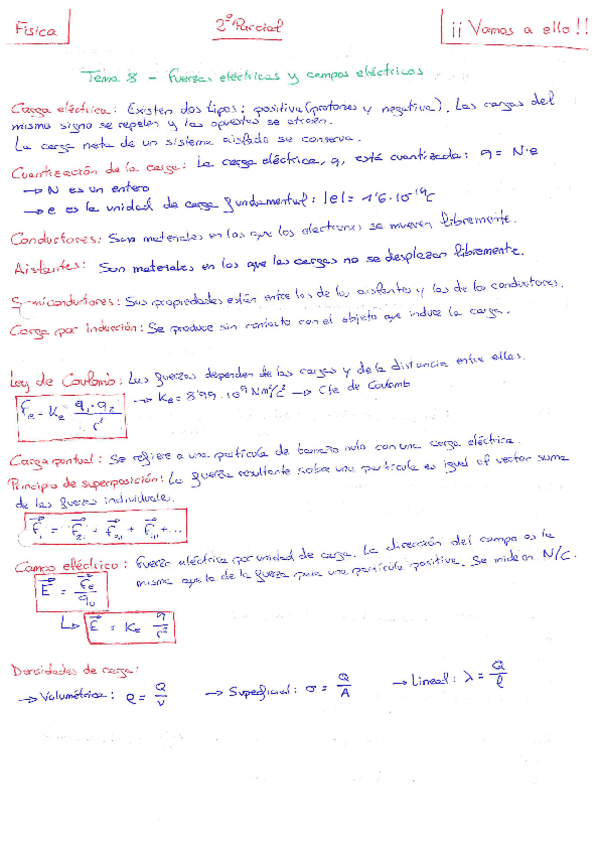 Física
2º Parcial
¡¡ Vamos a ello !!
Tema 8 - Fuerzas eléctricas y campos eléctricos
Carga eléctrica: Existen dos tipos: positiva (protones y negativa). Las cargas del
mismo signo se repelen y las opuestas se atraen.
La carga neta de un sistema aislado se conserva.
Cuantización de la carga: La carga eléctrica, q, está cuantizada: q = N·e
→ N es un entero
→ e es la unidad de carga fundamental: |e| = 1'6·10⁻¹⁹C
Conductores: Son materiales en los que los electrones se mueven libremente.
Aislantes: Son materiales en los que las cargas no se desplazan libremente.
Semiconductores: Sus propiedades están entre las de los aislantes y las de los conductores.
Carga por inducción: Se produce sin contacto con el objeto que induce la carga.
Ley de Coulomb: Las fuerzas dependen de las cargas y de la distancia entre ellas.
Fe = Ke q₁·q₂/r²
→ Ke = 8'99·10⁹ Nm²/C² → Cte de Coulomb
Carga puntual: Se refiere a una partícula de tamaño nulo con una carga eléctrica.
Principio de superposición: La fuerza resultante sobre una partícula es igual al vector suma
de las fuerzas individuales.
Campo eléctrico: Fuerza eléctrica por unidad de carga. La dirección del campo es la
misma que la de la fuerza para una partícula positiva. Se mide en N/C.
E⃗ = F⃗e/q₀
↳ E⃗ = Ke q/r²
Densidades de carga:
→ Volumétrica: ρ = Q/V → Superficial: σ = Q/A → Lineal: λ = Q/ℓ